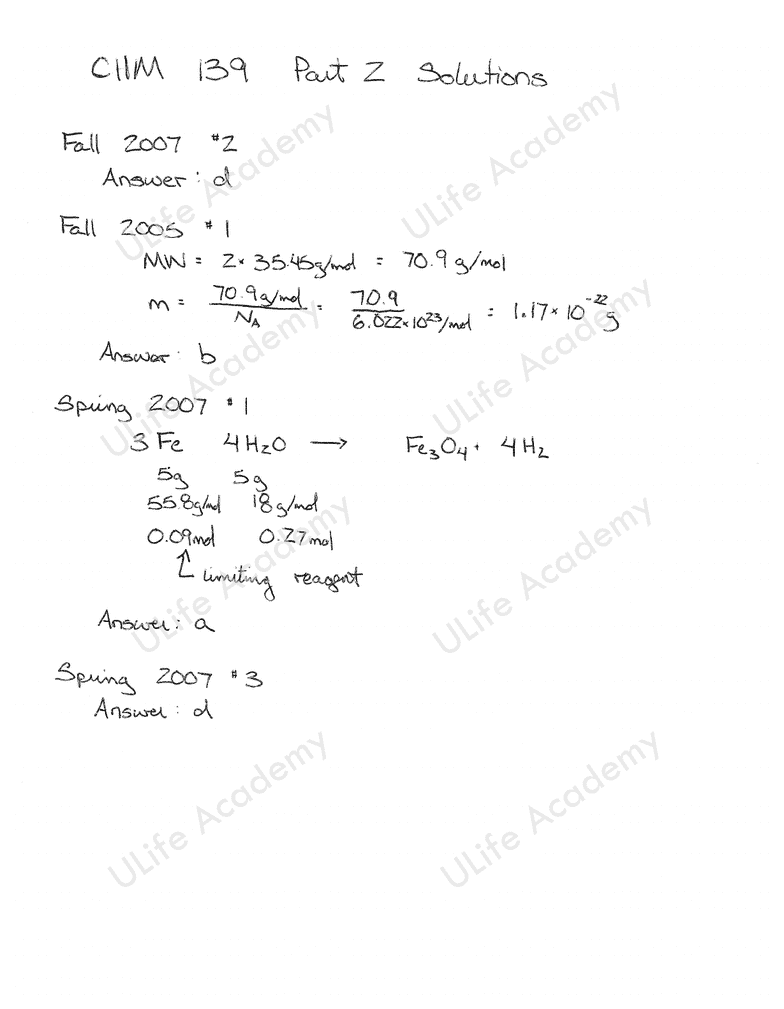 CHM 139 Part 2 Solutions
Fall 2007 #2
Answer: d
Fall 2005 #1
MW = 2 × 35.45g/mol = 70.9 g/mol
m = 70.9g/mol / NA = 70.9 / 6.022×10²³/mol = 1.17×10⁻²²g
Answer: b
Spring 2007 #1
3 Fe 4 H₂O → Fe₃O₄ + 4 H₂
5g 5g
55.8g/mol 18g/mol
0.09mol 0.27mol
↑ limiting reagent
Answer: a
Spring 2007 #3
Answer: d
ULife Academy
ULife Academy
ULife Academy
ULife Academy
ULife Academy
ULife Academy
ULife Academy
ULife Academy